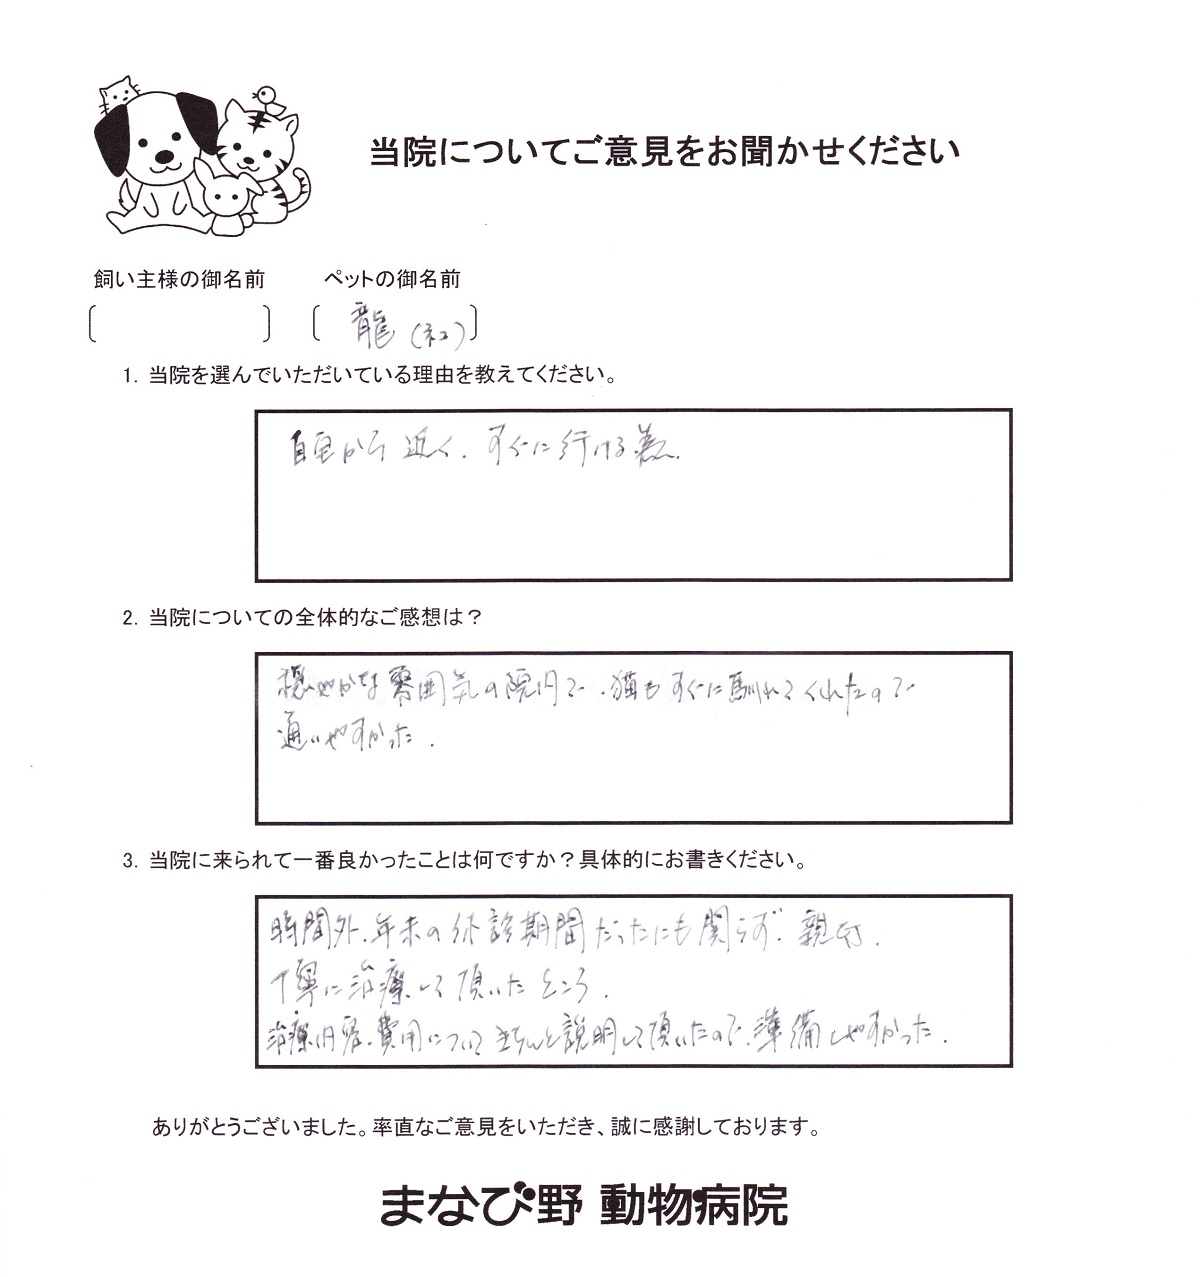 当院についてご意見をお聞かせください
飼い主様の御名前 ペットの御名前
龍 (ネコ)
1. 当院を選んでいただいている理由を教えてください。
自宅から近く、すぐに行ける為。
2. 当院についての全体的なご感想は？
穏やかな雰囲気の院内で、猫もすぐに馴れてくれたので
通いやすかった。
3. 当院に来られて一番良かったことは何ですか？具体的にお書きください。
時間外、年末の休診期間だったにも関らず、親切、
丁寧に治療して頂いたところ。
治療内容、費用についてきちんと説明して頂いたので、準備しやすかった。
ありがとうございました。率直なご意見をいただき、誠に感謝しております。
まなび野 動物病院